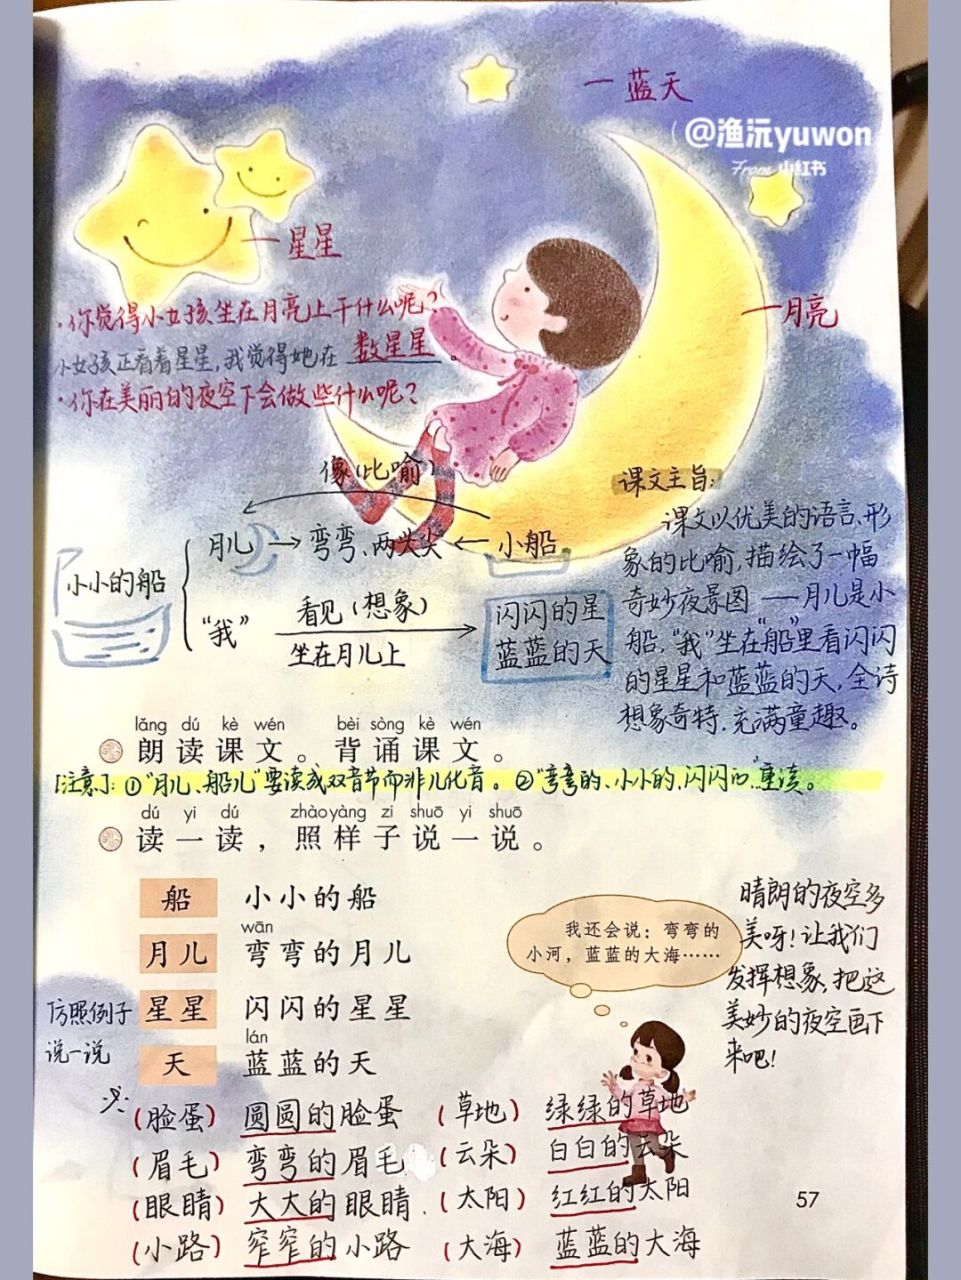 一蓝天
@渔沅yuwon
From 小红书
一星星
一月亮
·你觉得小女孩坐在月亮上干什么呢?
小女孩正看着星星,我觉得她在 数星星 。
·你在美丽的夜空下会做些什么呢?
像(比喻)
月儿→弯弯、两头尖←小船
小小的船
"我"
看见(想象)
坐在月儿上
闪闪的星
蓝蓝的天
课文主旨:
课文以优美的语言、形
象的比喻,描绘了一幅
奇妙夜景图——月儿是小
船,"我"坐在"船"里看闪闪
的星星和蓝蓝的天,全诗
想象奇特,充满童趣。
lǎng dú kè wén bèi sòng kè wén
朗读课文。背诵课文。
[注意]:①"月儿、船儿"要读成双音节而非儿化音。②"弯弯的、小小的、闪闪的"重读。
dú yi dú zhào yàng zi shuō yi shuō
读一读,照样子说一说。
船 小小的船
wān
月儿 弯弯的月儿
星星 闪闪的星星
lán
天 蓝蓝的天
仿照例子
说一说
我还会说:弯弯的
小河,蓝蓝的大海……
晴朗的夜空多
美呀!让我们
发挥想象,把这
美妙的夜空画下
来吧!
(脸蛋) 圆圆的脸蛋 (草地) 绿绿的草地
(眉毛) 弯弯的眉毛 (云朵) 白白的云朵
(眼睛) 大大的眼睛. (太阳) 红红的太阳
(小路) 窄窄的小路 (大海) 蓝蓝的大海
57